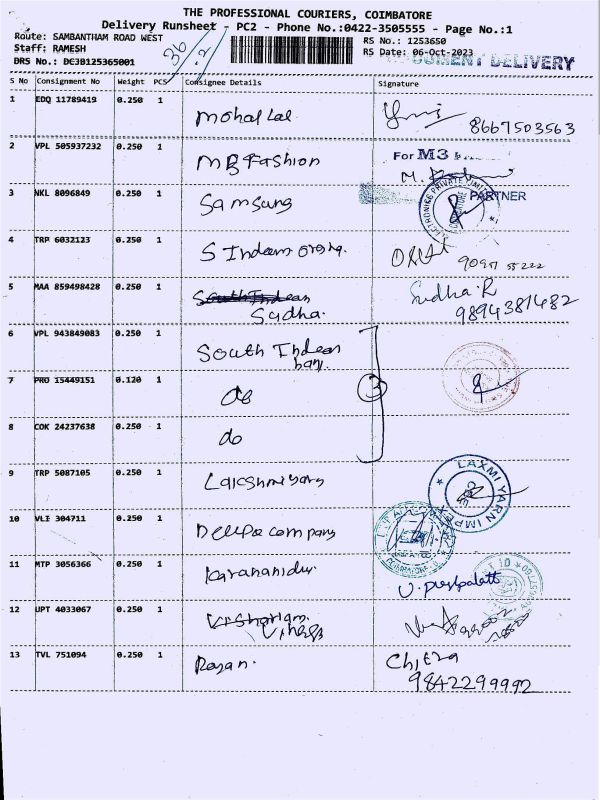 THE PROFESSIONAL COURIERS, COIMBATORE
Delivery Runsheet - PC2 - Phone No.:0422-3505555 - Page No.:1
Route: SAMBANTHAM ROAD WEST RS No.: 1253650
Staff: RAMESH RS Date: 06-Oct-2023
DRS No.: DCJB125365001 36 -2 DELIVERY
S No Consignment No Weight PCS Consignee Details Signature
1 EDQ 11789419 0.250 1 Mohal Lal 8667503563
2 VPL 505937232 0.250 1 MB Fashion For M3
PARTNER
3 NKL 8096849 0.250 1 Samsung
4 TRP 6032123 0.250 1 S Indeam
5 MAA 859498428 0.250 1 Sudha. Sudha.R
9894381482
6 VPL 943849083 0.250 1 South Indean
7 PRO 15449151 0.120 1 do 3
8 COK 24237638 0.250 1 do
9 TRP 5087105 0.250 1 LAXMI YARN IMPEX
10 VLI 304711 0.250 1 company
11 MTP 3056366 0.250 1
12 UPT 4033067 0.250 1
13 TVL 751094 0.250 1 Rajan. Chitra
9842299992